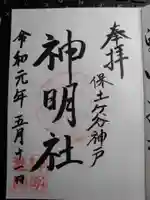 奉拝
保土ヶ谷神戸
神明社
令和元年五月十一日